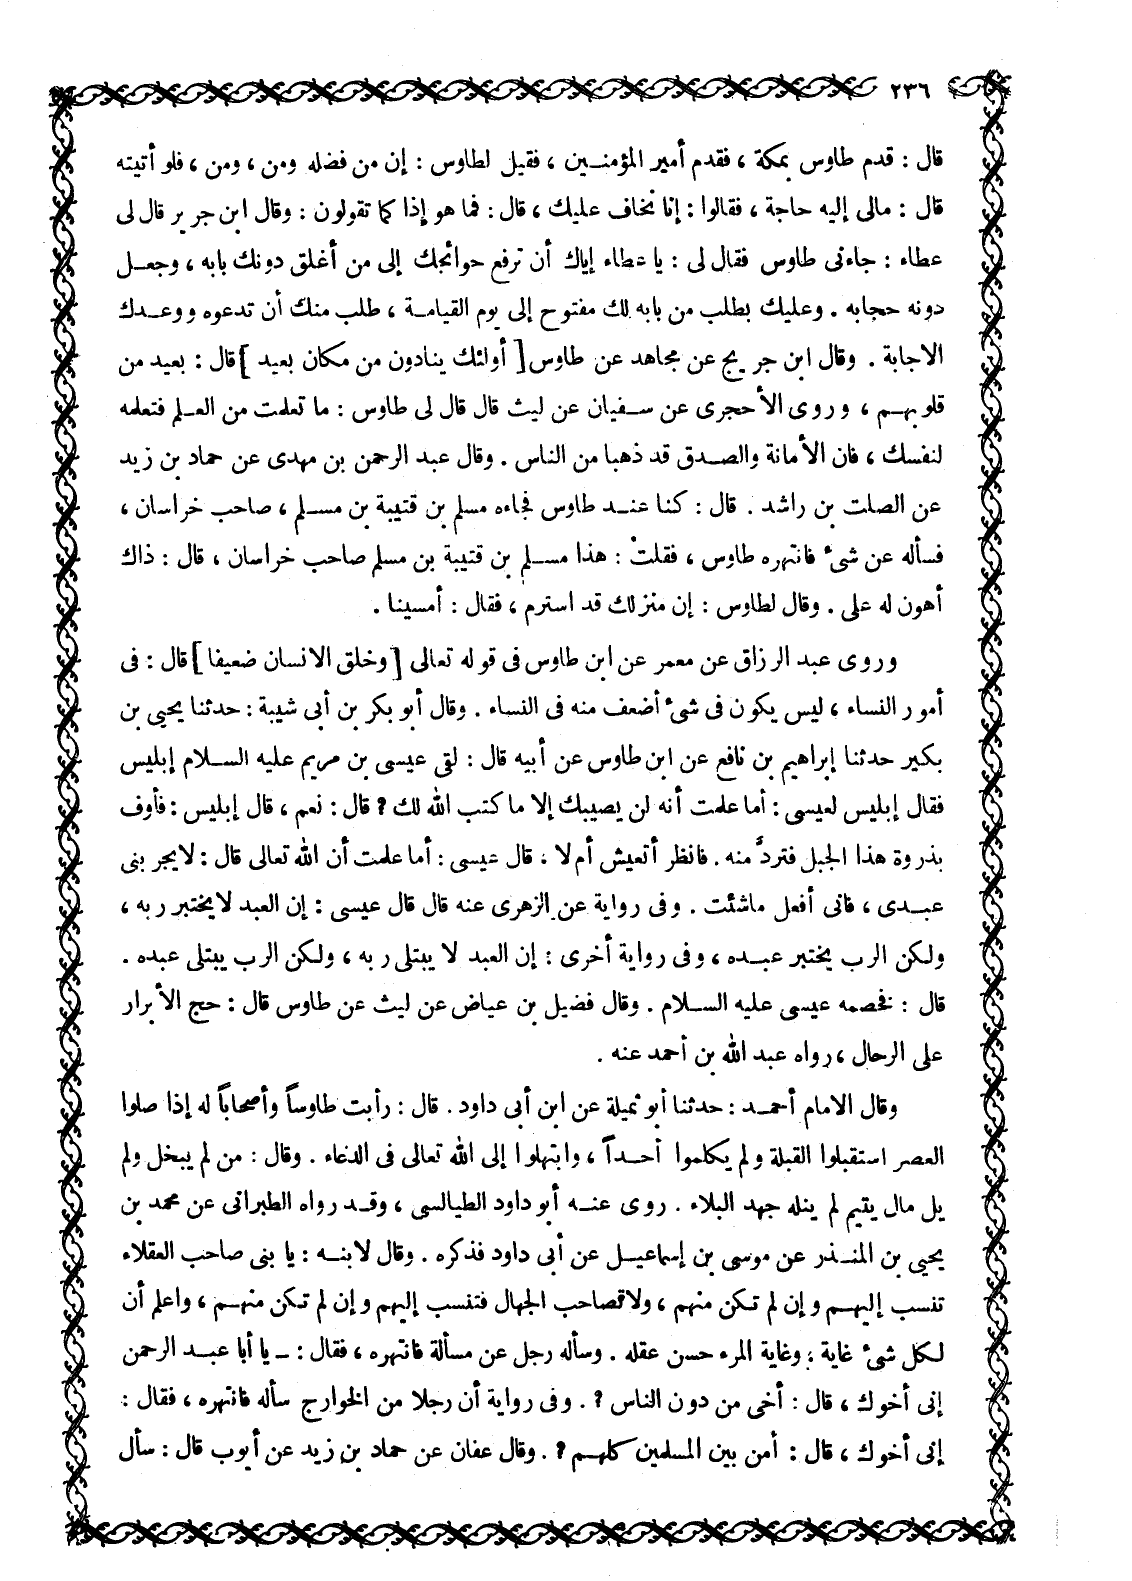 ٢٣٦
قال : قدم طاوس بمكة ، فقدم أمير المؤمنين ، فقيل لطاوس : إن من فضله ومن ، ومن ، فلو أتيته
قال : مالى إليه حاجة ، فقالوا : إنا نخاف عليك ، قال : فما هو إذا كما تقولون : وقال ابن جرير قال لى
عطاء : جاءنى طاوس فقال لى : يا عطاء إياك أن ترفع حوائجك إلى من أغلق دونك بابه ، وجعل
دونه حجابه . وعليك بطلب من بابه لك مفتوح إلى يوم القيامة ، طلب منك أن تدعوه ووعدك
الاجابة . وقال ابن جريج عن مجاهد عن طاوس [ أولئك ينادون من مكان بعيد ] قال : بعيد من
قلوبهم ، وروى الأحجرى عن سفيان عن ليث قال قال لى طاوس : ما تعلمت من العلم فتعلمه
لنفسك ، فان الأمانة والصدق قد ذهبا من الناس . وقال عبد الرحمن بن مهدى عن حماد بن زيد
عن الصلت بن راشد . قال : كنا عند طاوس فجاءه مسلم بن قتيبة بن مسلم ، صاحب خراسان ،
فسأله عن شىء فانتهره طاوس ، فقلت : هذا مسلم بن قتيبة بن مسلم صاحب خراسان ، قال : ذاك
أهون له على . وقال لطاوس : إن منزلك قد استرم ، فقال : أمسينا .
وروى عبد الرزاق عن معمر عن ابن طاوس فى قوله تعالى [ وخلق الانسان ضعيفا ] قال : فى
أمور النساء ، ليس يكون فى شىء أضعف منه فى النساء . وقال أبو بكر بن أبى شيبة : حدثنا يحيى بن
بكير حدثنا إبراهيم بن نافع عن ابن طاوس عن أبيه قال : لقى عيسى بن مريم عليه السلام إبليس
فقال إبليس لعيسى : أما علمت أنه لن يصيبك إلا ما كتب الله لك ؟ قال : نعم ، قال إبليس : فأوف
بذروة هذا الجبل فتردَّ منه . فانظر أتعيش أم لا ، قال عيسى : أما علمت أن الله تعالى قال : لا يجربنى
عبدى ، فانى أفعل ماشئت . وفى رواية عن الزهرى عنه قال قال عيسى : إن العبد لا يختبر ربه ،
ولكن الرب يختبر عبده ، وفى رواية أخرى : إن العبد لا يبتلى ربه ، ولكن الرب يبتلى عبده .
قال : فخصمه عيسى عليه السلام . وقال فضيل بن عياض عن ليث عن طاوس قال : حج الأبرار
على الرحال ، رواه عبد الله بن أحمد عنه .
وقال الامام أحمد : حدثنا أبو ثميلة عن ابن أبى داود . قال : رأيت طاوساً وأصحاباً له إذا صلوا
العصر استقبلوا القبلة ولم يكلموا أحداً ، وابتهلوا إلى الله تعالى فى الدعاء . وقال : من لم يبخل ولم
يل مال يتيم لم ينله جهد البلاء . روى عنه أبو داود الطيالسى ، وقد رواه الطبرانى عن محمد بن
يحيى بن المنذر عن موسى بن إسماعيل عن أبى داود فذكره . وقال لابنه : يا بنى صاحب العقلاء
تنسب إليهم وإن لم تكن منهم ، ولا تصاحب الجهال فتنسب إليهم وإن لم تكن منهم ، واعلم أن
لكل شىء غاية ، وغاية المرء حسن عقله . وسأله رجل عن مسألة فانتهره ، فقال : ـ يا أبا عبد الرحمن
إنى أخوك ، قال : أخى من دون الناس ؟ . وفى رواية أن رجلا من الخوارج سأله فانتهره ، فقال :
إنى أخوك ، قال : أمن بين المسلمين كلهم ؟ . وقال عفان عن حماد بن زيد عن أيوب قال : سأل